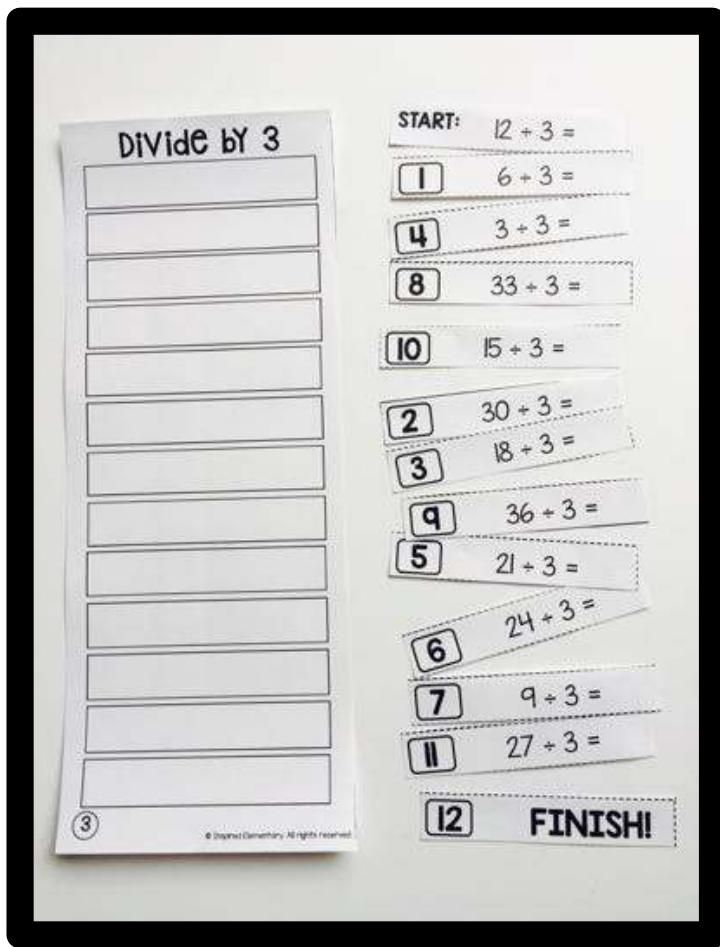 Divide by 3
3
© Inspired Elementary. All rights reserved.
START: 12 ÷ 3 =
1 6 ÷ 3 =
4 3 ÷ 3 =
8 33 ÷ 3 =
10 15 ÷ 3 =
2 30 ÷ 3 =
3 18 ÷ 3 =
9 36 ÷ 3 =
5 21 ÷ 3 =
6 24 ÷ 3 =
7 9 ÷ 3 =
11 27 ÷ 3 =
12 FINISH!